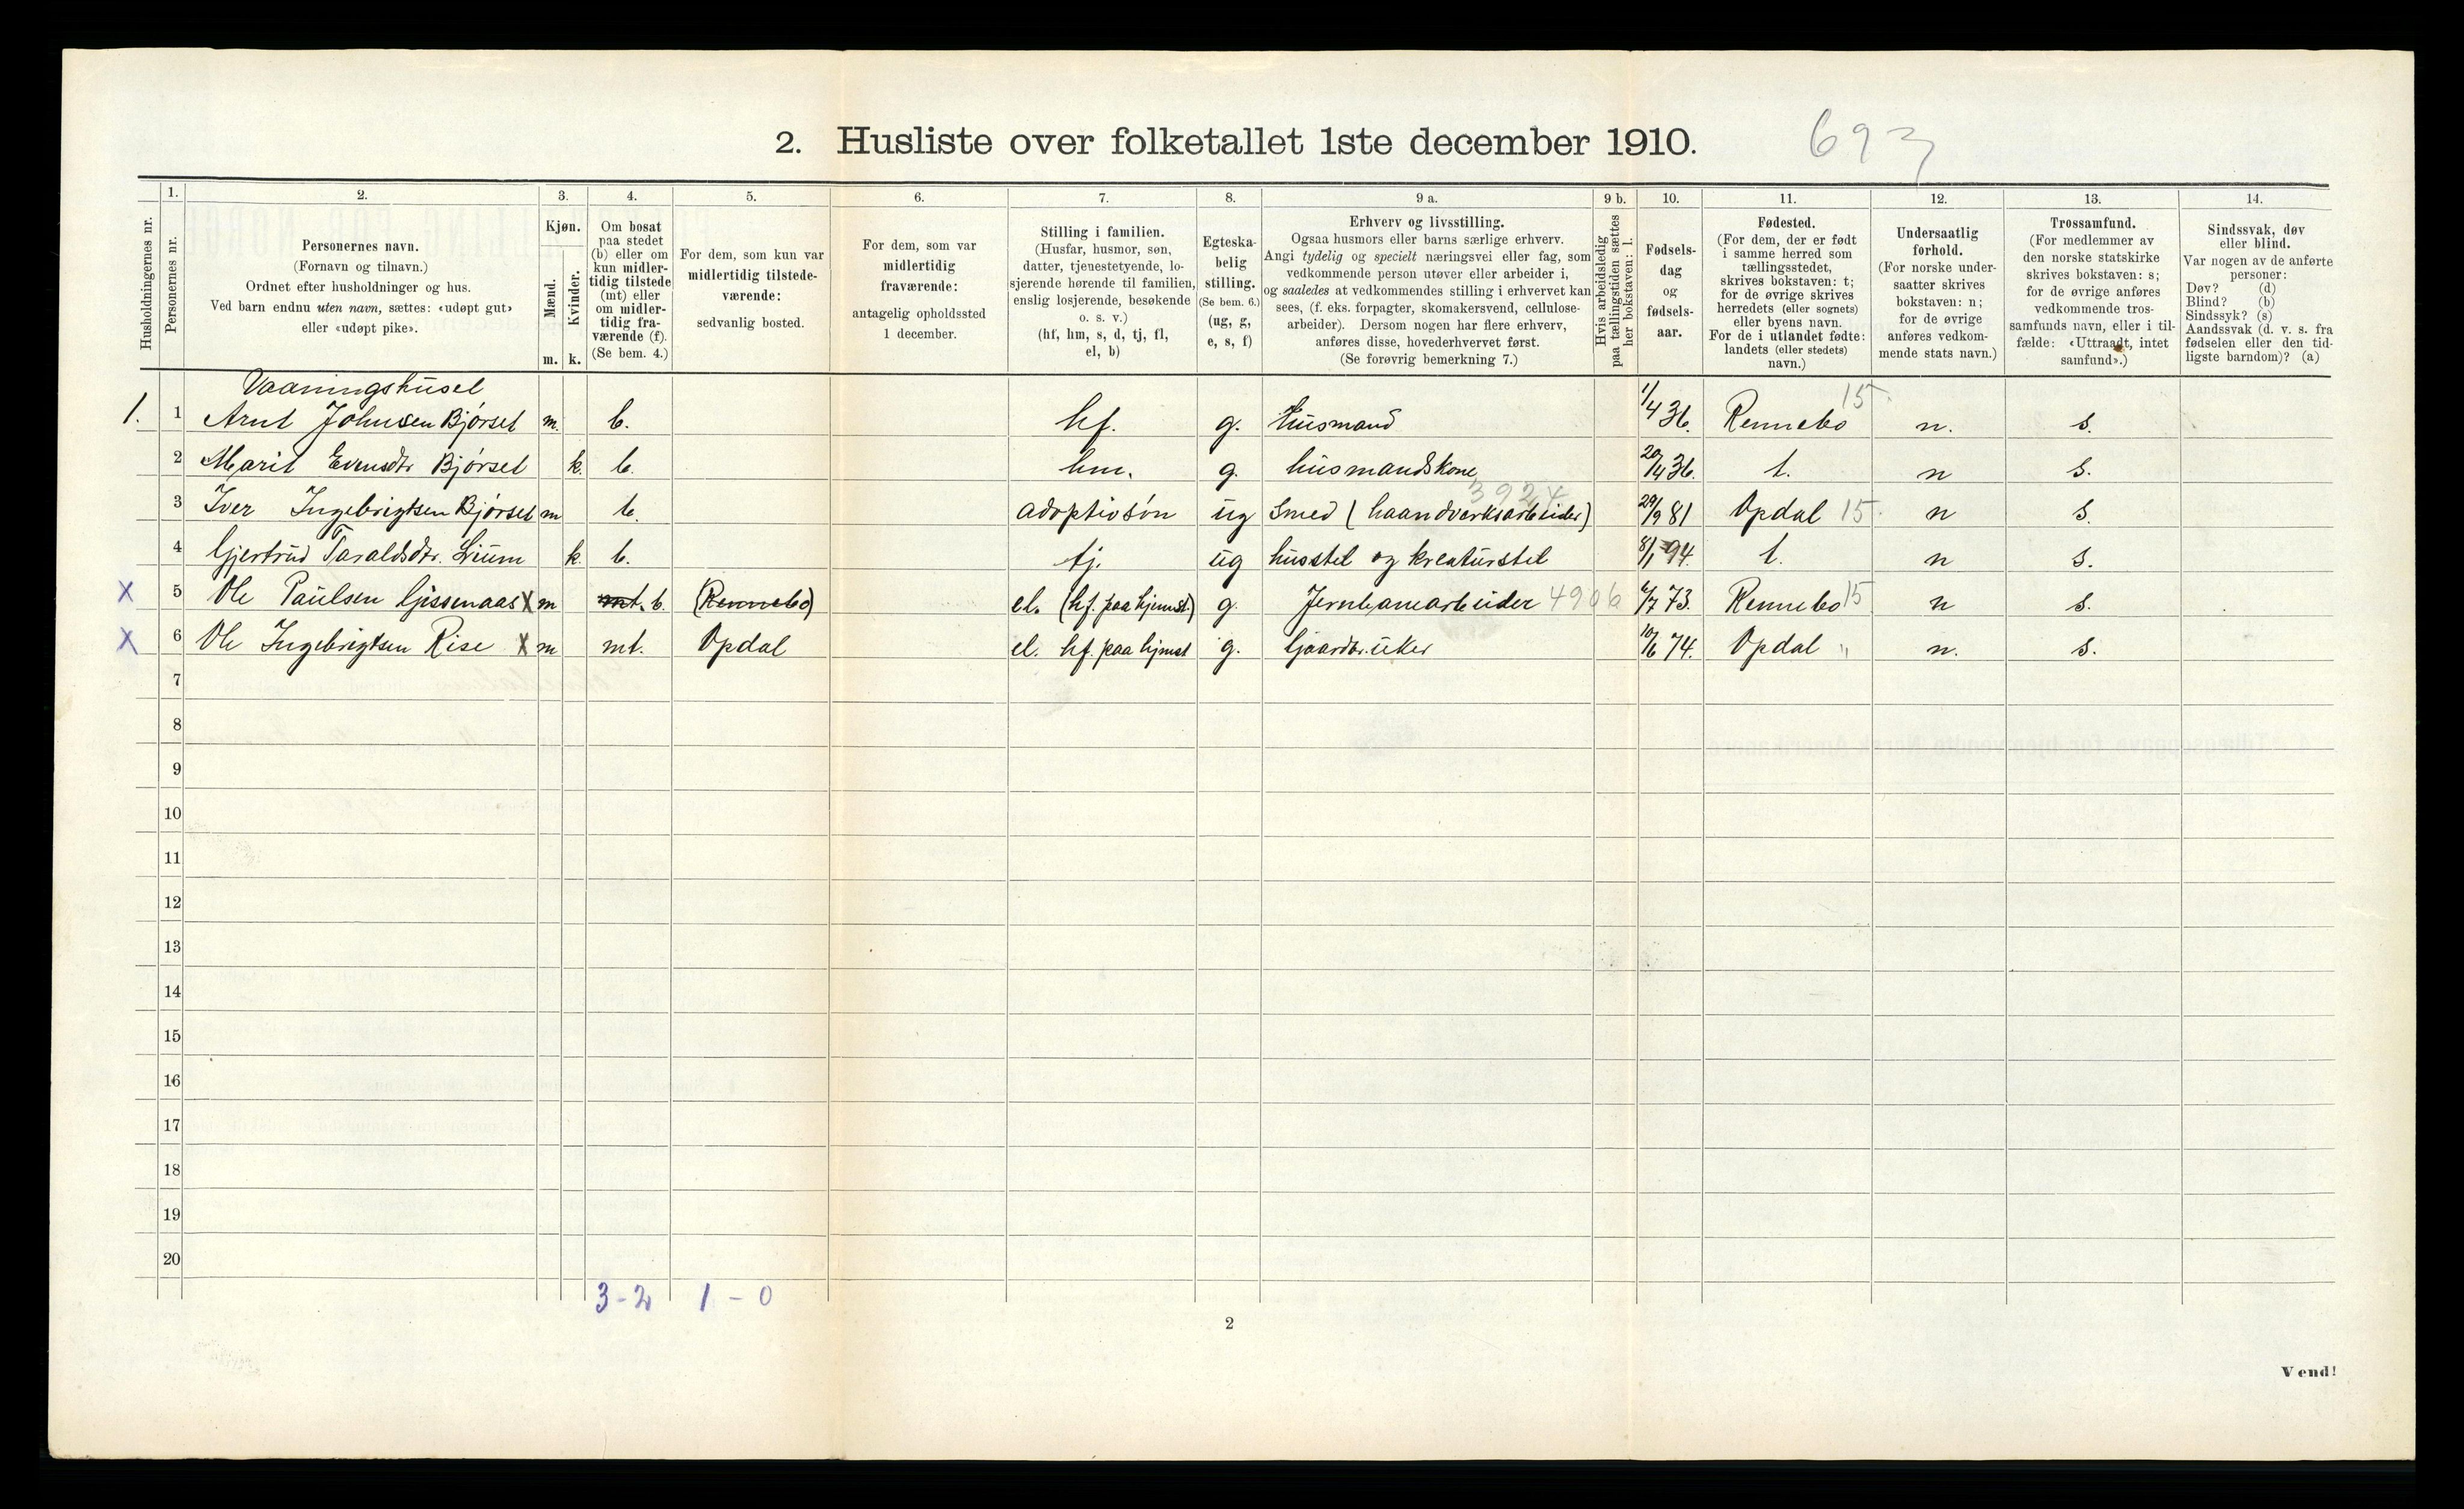 2. Husliste over folketallet 1ste december 1910.
693
Husholdningernes nr.
1.
Personernes nr.
2.
Personernes navn.
(Fornavn og tilnavn.)
Ordnet efter husholdninger og hus.
Ved barn endnu uten navn, sættes: «udøpt gut»
eller «udøpt pike».
3.
Kjøn.
Mænd.
Kvinder.
m. k.
4.
Om bosat
paa stedet
(b) eller om
kun midler-
tidig tilstede
(mt) eller
om midler-
tidig fra-
værende (f).
(Se bem. 4.)
5.
For dem, som kun var
midlertidig tilstede-
værende:
sedvanlig bosted.
6.
For dem, som var
midlertidig
fraværende:
antagelig opholdssted
1 december.
7.
Stilling i familien.
(Husfar, husmor, søn,
datter, tjenestetyende, lo-
sjerende hørende til familien,
enslig losjerende, besøkende
o. s. v.)
(hf, hm, s, d, tj, fl,
el, b)
8.
Egteska-
belig
stilling.
(Se bem. 6.)
(ug, g,
e, s, f)
9 a.
Erhverv og livsstilling.
Ogsaa husmors eller barns særlige erhverv.
Angi tydelig og specielt næringsvei eller fag, som
vedkommende person utøver eller arbeider i,
og saaledes at vedkommendes stilling i erhvervet kan
sees, (f. eks. forpagter, skomakersvend, cellulose-
arbeider). Dersom nogen har flere erhverv,
anføres disse, hovederhvervet først.
(Se forøvrig bemerkning 7.)
9 b.
Hvis arbeidsledig
paa tællingstiden sættes
her bokstaven: l.
10.
Fødsels-
dag
og
fødsels-
aar.
11.
Fødested.
(For dem, der er født
i samme herred som
tællingsstedet,
skrives bokstaven: t;
for de øvrige skrives
herredets (eller sognets)
eller byens navn.
For de i utlandet fødte:
landets (eller stedets)
navn.)
12.
Undersaatlig
forhold.
(For norske under-
saatter skrives
bokstaven: n;
for de øvrige
anføres vedkom-
mende stats navn.)
13.
Trossamfund.
(For medlemmer av
den norske statskirke
skrives bokstaven: s;
for de øvrige anføres
vedkommende tros-
samfunds navn, eller i til-
fælde: «Uttraadt, intet
samfund».)
14.
Sindssvak, døv
eller blind.
Var nogen av de anførte
personer:
Døv? (d)
Blind? (b)
Sindssyk? (s)
Aandssvak (d. v. s. fra
fødselen eller den tid-
ligste barndom)? (a)
Vaaningshuset
1. 1 Arnt Johnsen Bjørset m. b. hf. g. Husmand 1/4 36. Rennebo 15 n. s.
2 Marit Evensdtr Bjørset k. b. hm. g. husmandskone 20/4 36. t. n s.
3924
3 Iver Ingebrigtsen Bjørset m b. adoptivsøn ug Smed (haandverksarbeider) 29/9 81 Opdal 15. n s.
4 Gjertrud Taraldsdtr. Lium k. b. tj. ug husstel og kreaturstel 8/1 94. t. n s.
X 5 Ole Paulsen Gissenaas X m mt. b. (Rennebo) el. (hf. paa hjemst.) g. Jernbanearbeider 4906 4/7 73. Rennebo 15 n s.
X 6 Ole Ingebrigtsen Rise X m mt. Opdal el. hf. paa hjemst g. Gjaardbruker 10/6 74. Opdal " n. s.
7
8
9
10
11
12
13
14
15
16
17
18
19
20
3-2 1-0
2
Vend!